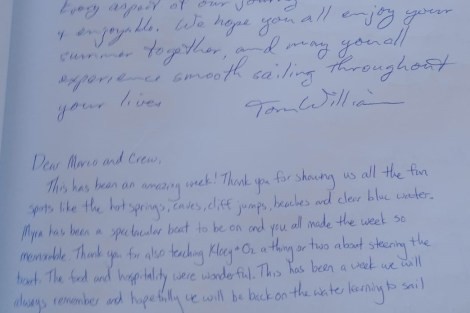 Every aspect of our journey
& enjoyable. We hope you all enjoy your
summer together, and may you all
experience smooth sailing throughout
your lives
Tom William
Dear Marco and Crew,
This has been an amazing week! Thank you for showing us all the fun
spots like the hot springs, caves, cliff jumps, beaches and clear blue water.
Myra has been a spectacular boat to be on and you all made the week so
memorable. Thank you for also teaching Kloey + Oz a thing or two about steering the
boat. The food and hospitality were wonderful. This has been a week we will
always remember and hopefully we will be back on the water learning to sail